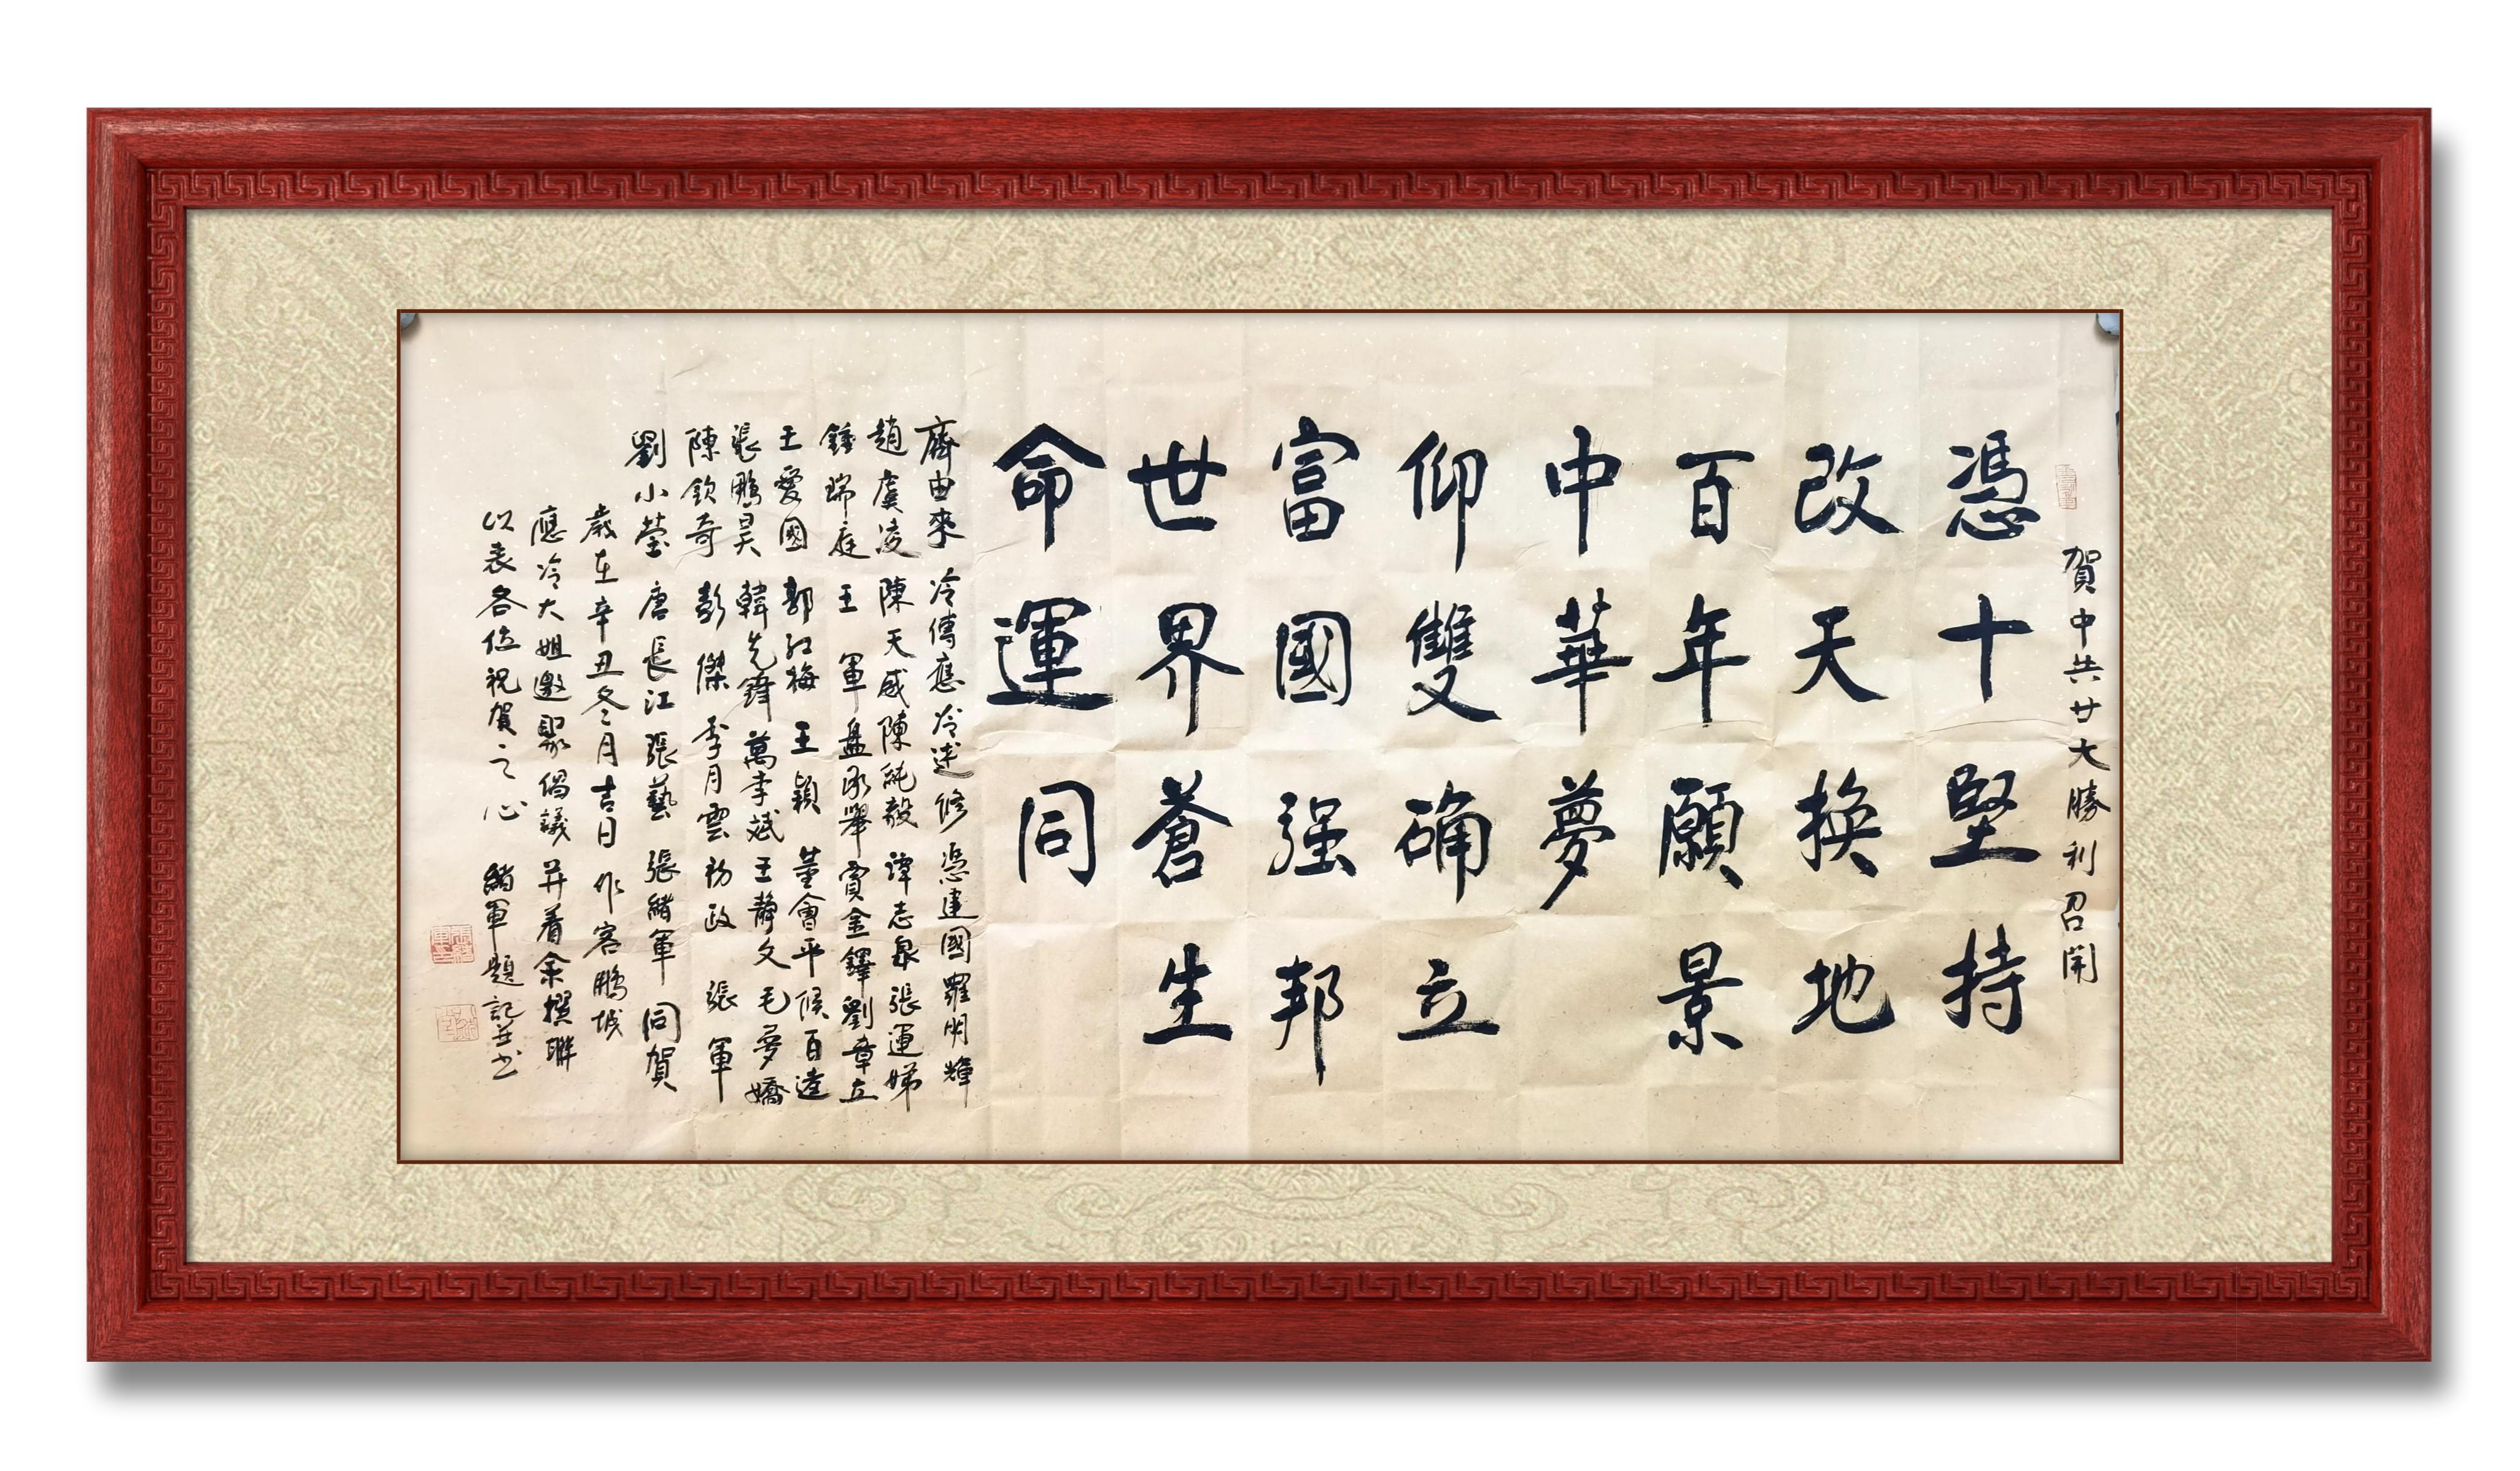 賀中共廿大勝利召開
憑十堅持
改天換地
百年願景
中華夢
仰雙確立
富國强邦
世界蒼生
命運同
齊由來 冷傳應 冷述修 馮建國 羅明輝
趙虞凌 陳天威 陳純毅 譚志泉 張運娣
鍾瑞庭 王軍 孟承舉 賓金鐸 劉章立
王愛國 郭紅梅 王穎 董會平 候百逵
張鵬昊 韓先鋒 萬李斌 王靜文 毛夢嬌
陳欽奇 彭傑 李月雲 初政 張軍
劉小瑩 唐長江 張藝 張緒軍 同賀
歲在辛丑冬月吉日 作客鵬城
應冷大姐邀聚倡議并着余撰聯
以表各位祝賀之心 緒軍題記并书